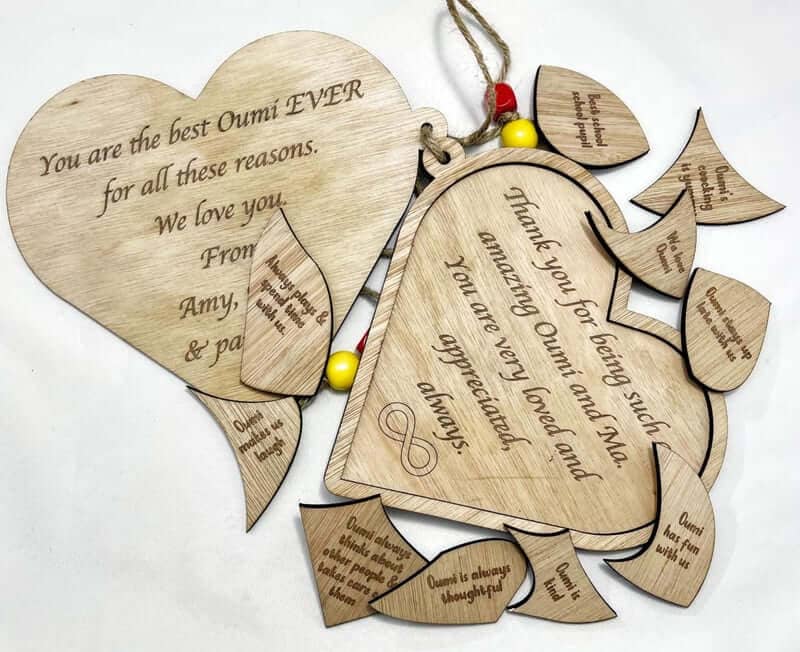 You are the best Oumi EVER
for all these reasons.
We love you.
From
Amy,
& pa
Always plays &
spend time
with us.
Oumi
makes us
laugh
Thank you for being such
amazing Oumi and Ma.
You are very loved and
appreciated,
always.
Best school
school pupil
Oumi's
cooking
is
We love
Oumi
Oumi stays up
late with us
Oumi
has fun
with us
Oumi is
kind
Oumi is always
thoughtful
Oumi always
thinks about
other people &
takes care
them